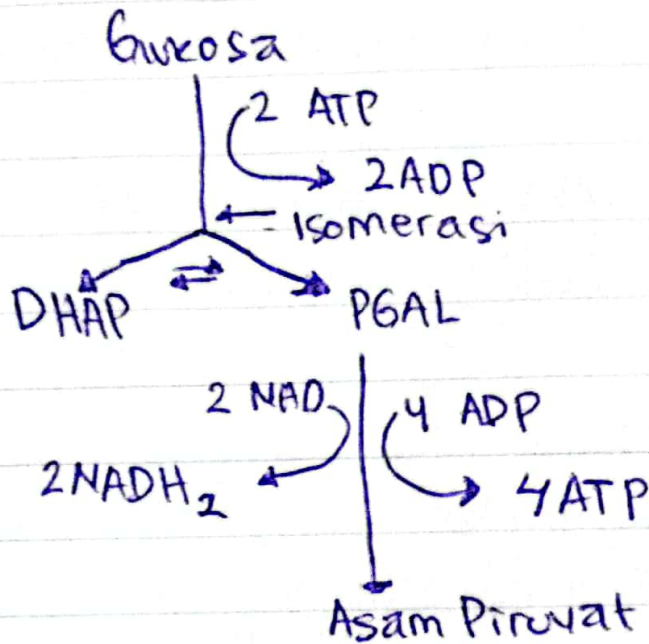 Gukosa
2 ATP
2ADP
Isomerasi
DHAP
PGAL
2 NAD
4 ADP
2NADH₂
4ATP
Asam Piruvat